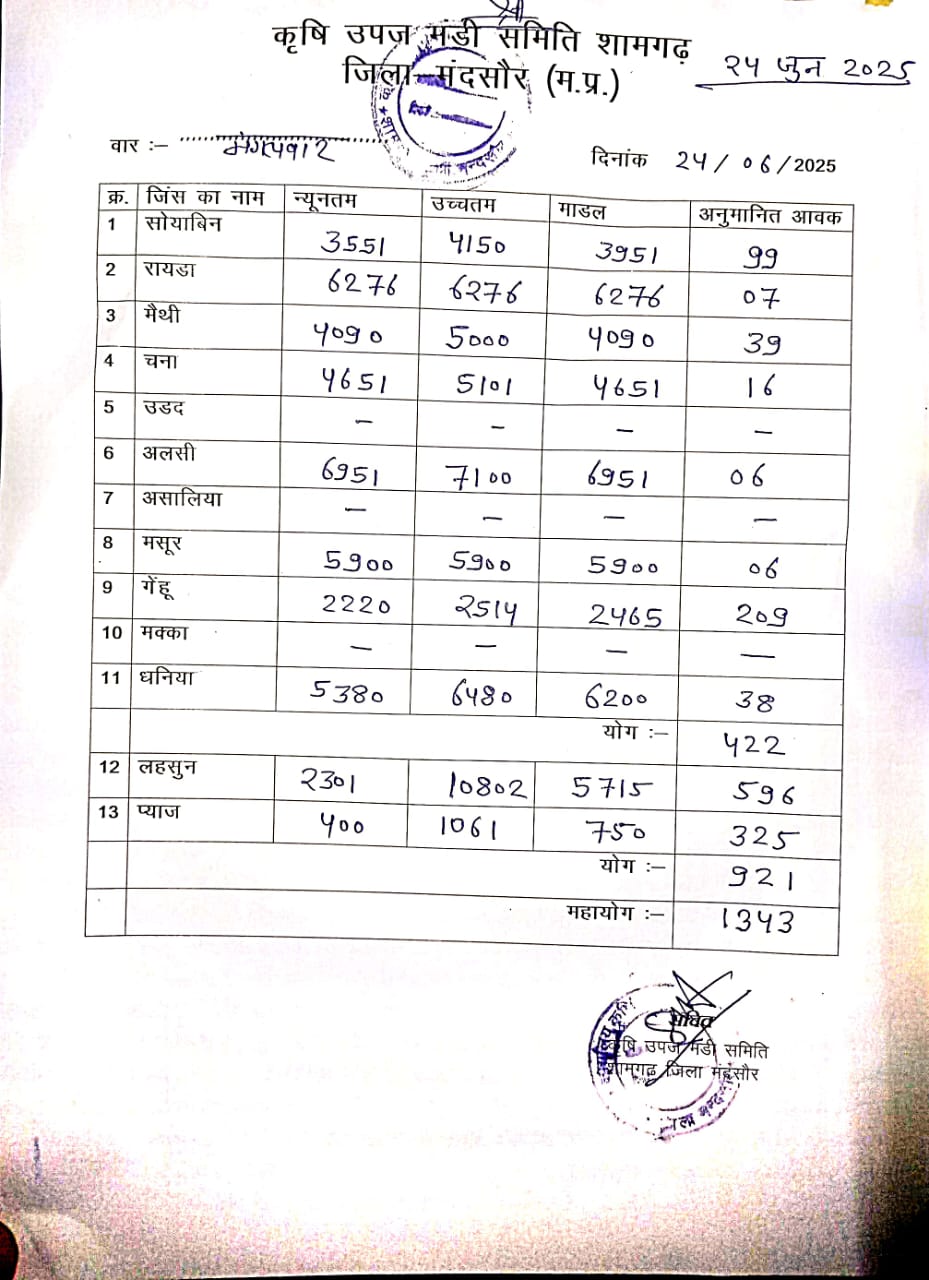 श्री
कृषि उपज मंडी समिति शामगढ़
जिला–मंदसौर (म.प्र.)
२४ जुन 2025
वार :– मंगलवार
दिनांक 24/06/2025
क्र. जिंस का नाम न्यूनतम उच्चतम माडल अनुमानित आवक
1 सोयाबिन 3551 4150 3951 99
2 रायडा 6276 6276 6276 07
3 मैथी 4090 5000 4090 39
4 चना 4651 5101 4651 16
5 उडद – – – –
6 अलसी 6951 7100 6951 06
7 असालिया – – – –
8 मसूर 5900 5900 5900 06
9 गेंहू 2220 2514 2465 209
10 मक्का – – – –
11 धनिया 5380 6480 6200 38
योग :– 422
12 लहसुन 2301 10802 5715 596
13 प्याज 400 1061 750 325
योग :– 921
महायोग :– 1343
सचिव
कृषि उपज मंडी समिति
शामगढ़ जिला मंदसौर